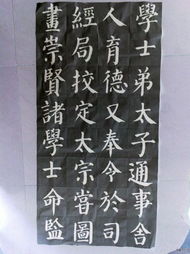 學士弟太子通事舍
人育德又奉令於司
經局挍定太宗嘗圖
畫崇賢諸學士命監